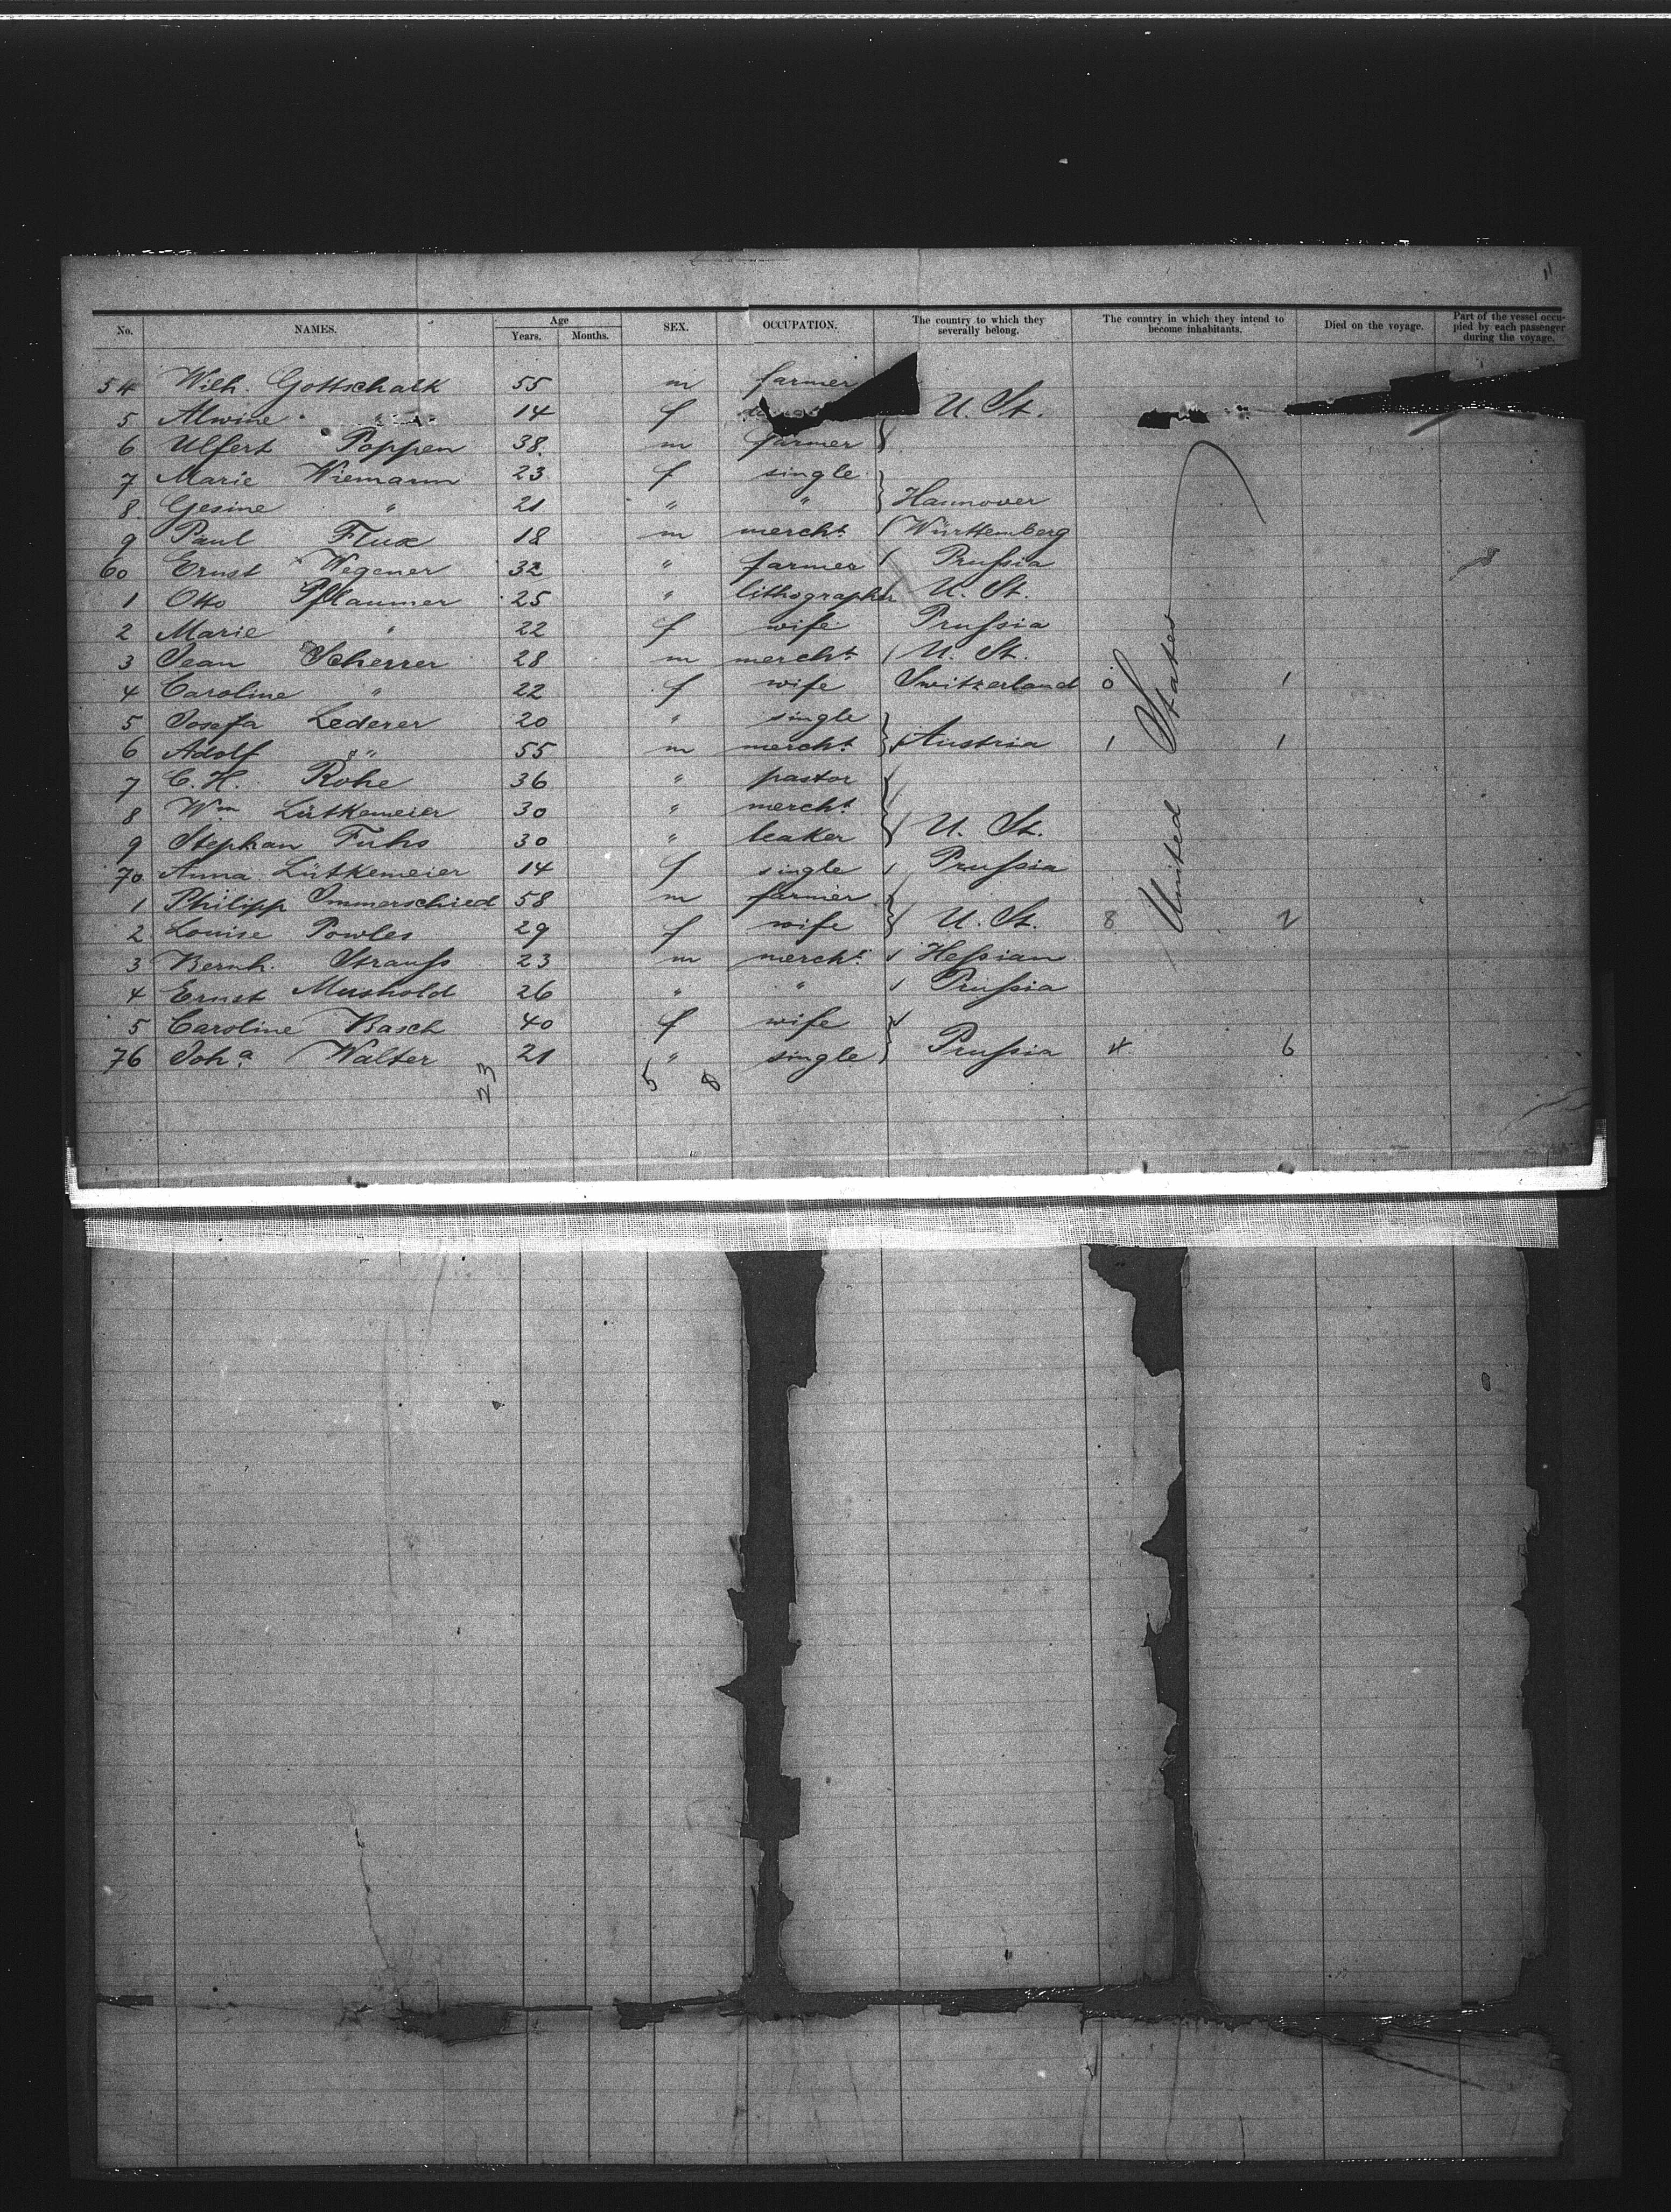 No. NAMES. Age Years. Months. SEX. OCCUPATION. The country to which they severally belong. The country in which they intend to become inhabitants. Died on the voyage. Part of the vessel occupied by each passenger during the voyage.
54 Wilh. Gottschalk 55 m farmer
5 Alwine " 14 f U. St.
6 Ulfert Poppen 38. m farmer
7 Marie Wiemann 23 f single
8 Gesine " 21 " " Hannover
9 Paul Flux 18 m mercht. Württemberg
60 Ernst Wegener 32 " farmer Prussia
1 Otto Pflaumer 25 " lithographer U. St.
2 Marie " 22 f wife Prussia
3 Jean Scherrer 28 m mercht. U. St.
4 Caroline " 22 f wife Switzerland 0 1
5 Josefa Lederer 20 " single
6 Adolf " 55 m mercht. Austria 1 1
7 C. H. Rohe 36 " pastor
8 Wm Lütkemeier 30 " mercht.
9 Stephan Fuhs 30 " beaker U. St.
70 Anna Lütkemeier 14 f single Prussia
1 Philipp Immerschied 58 m farmer
2 Louise Powles 29 f wife U. St. 8 2
3 Bernh. Strauss 23 m mercht. Hessian
4 Ernst Mushold 26 " " Prussia
5 Caroline Basch 40 f wife
76 Joha. Walter 21 " single Prussia 4 6
United States
23
5 8
11